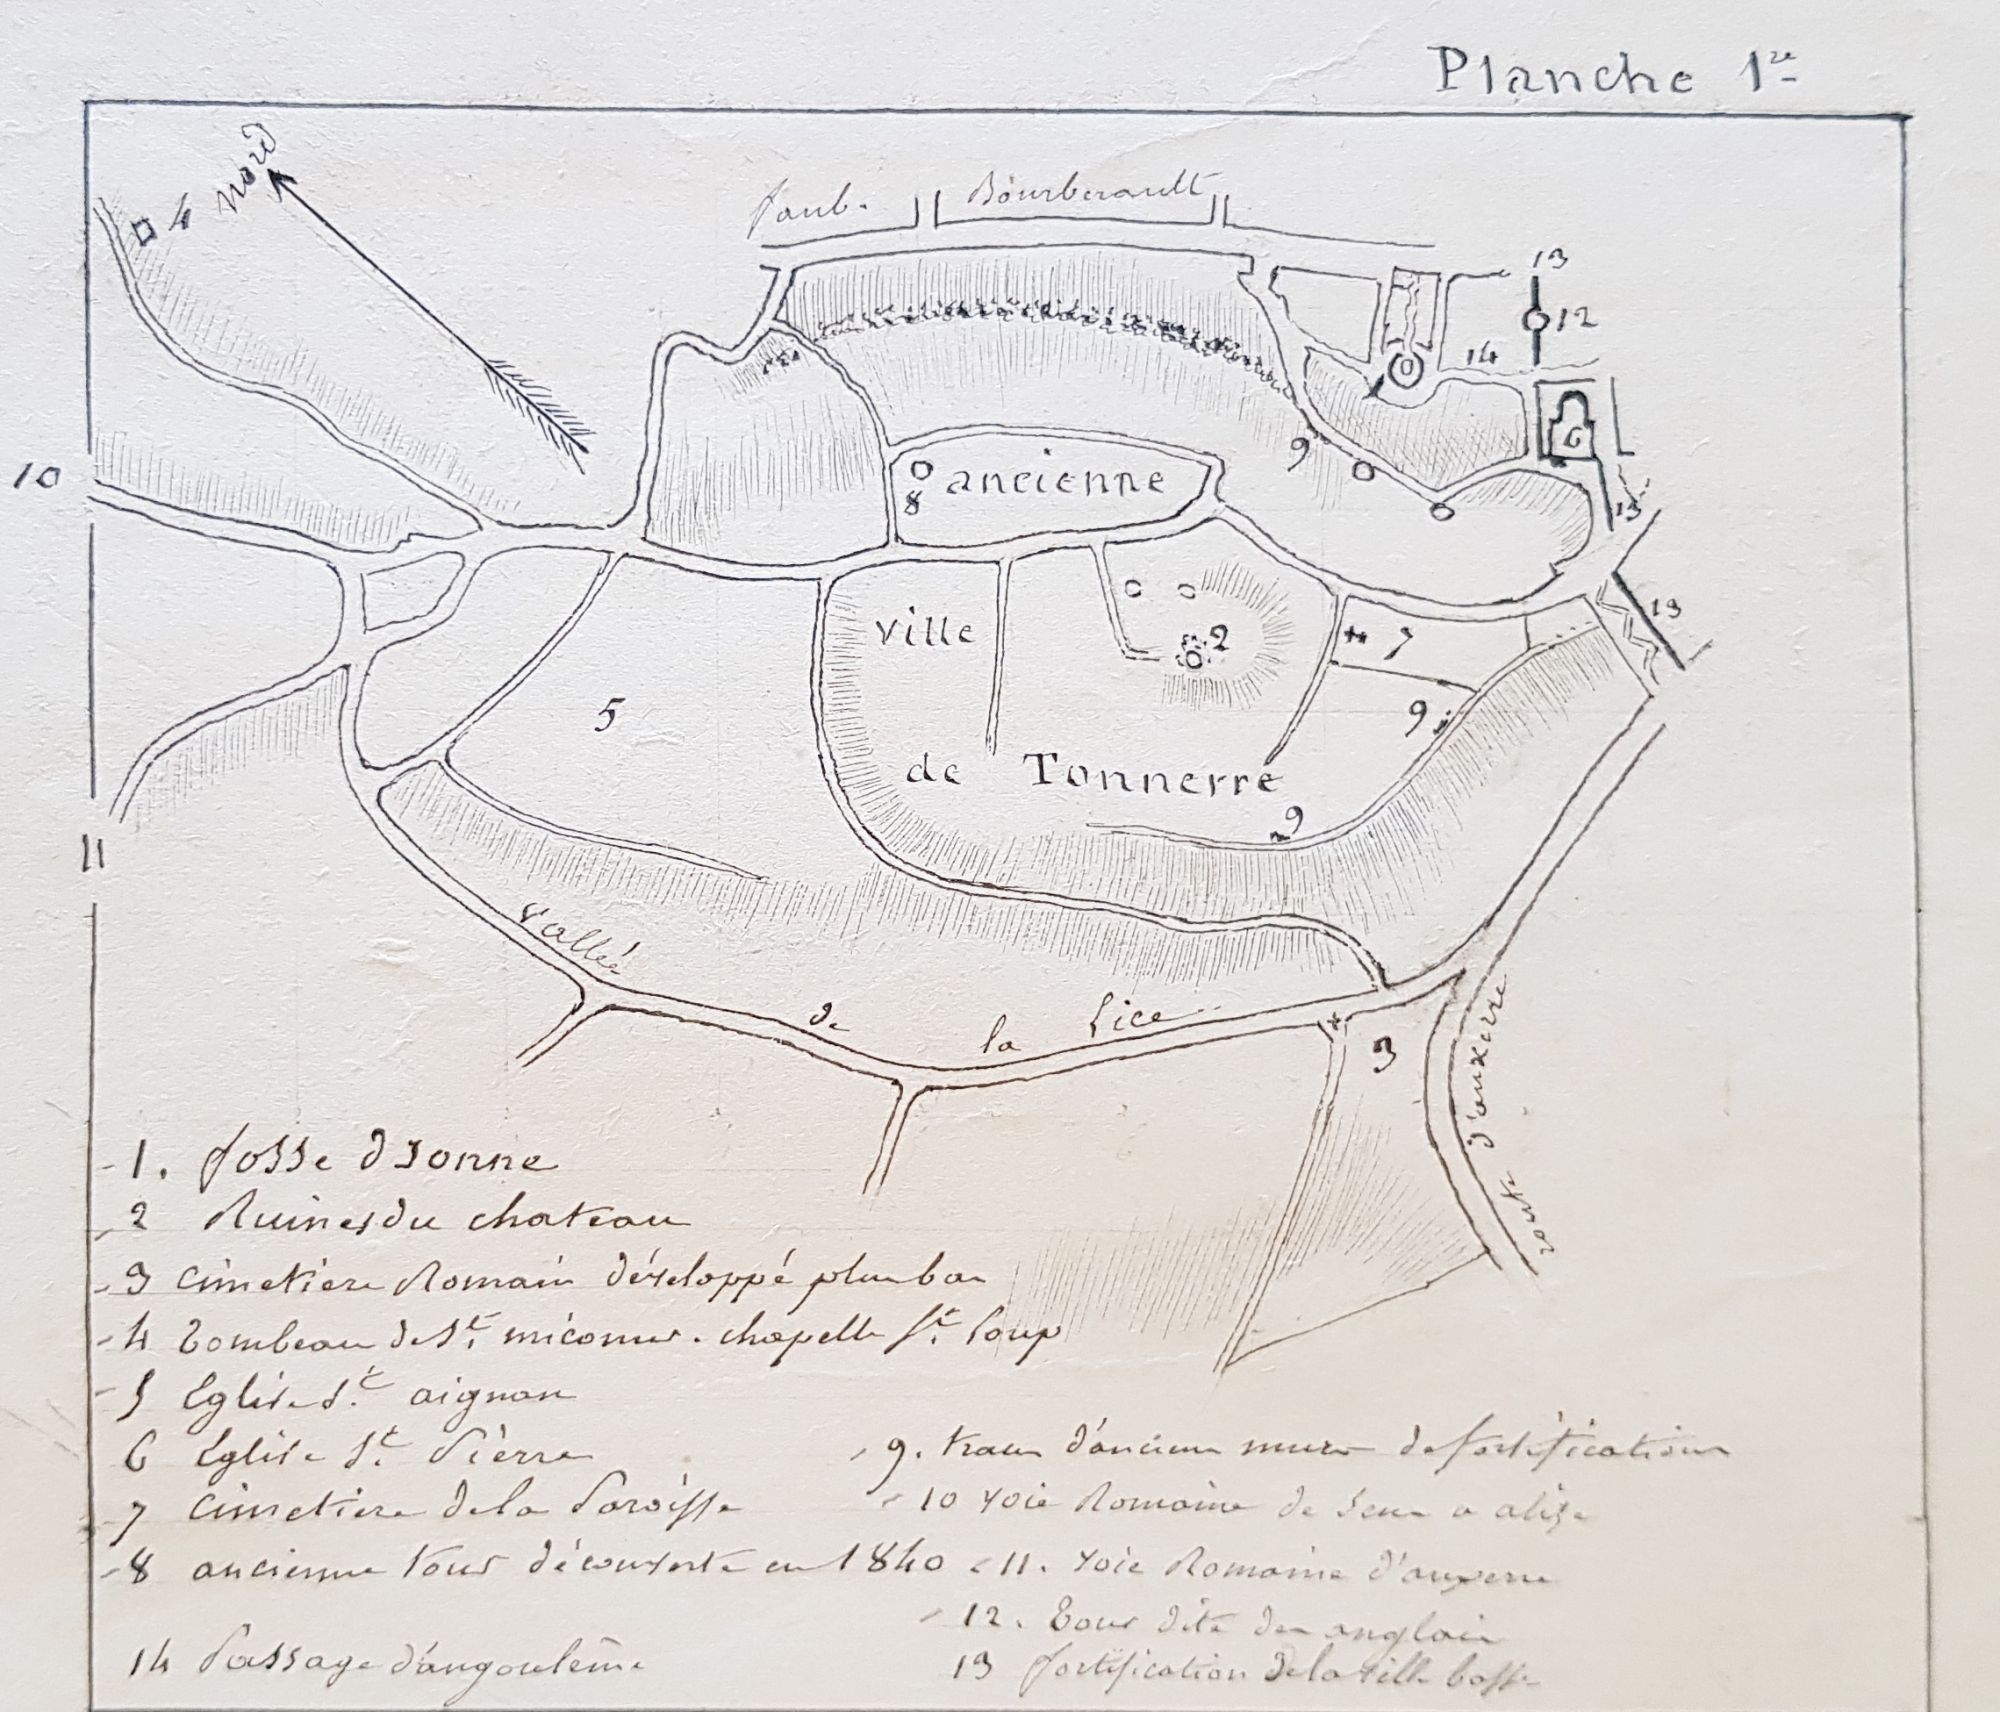 Planche 1re
nord
4
faub. Bourberault
13
12
14
10
9
6
8
ancienne
13
ville
2
7
13
5
9
de Tonnerre
9
11
Vallée de la Lice
3
route d'auxerre
- 1. fosse dionne
2 Ruines du chateau
- 3 cimetiere Romain développé plus bas
- 4 tombeau de St. micomer. chapelle St. Loup
- 5 Eglise St. aignan
6 Eglise St. Pierre
7 cimetiere de la Paroisse
- 8 ancienne tour découverte en 1840
14 Passage d'angoulême
- 9. traces d'anciens murs de fortifications
- 10 voie Romaine de Sens a alise
- 11. voie Romaine d'auxerre
- 12. tour dite des anglais
13 fortification de la ville basse